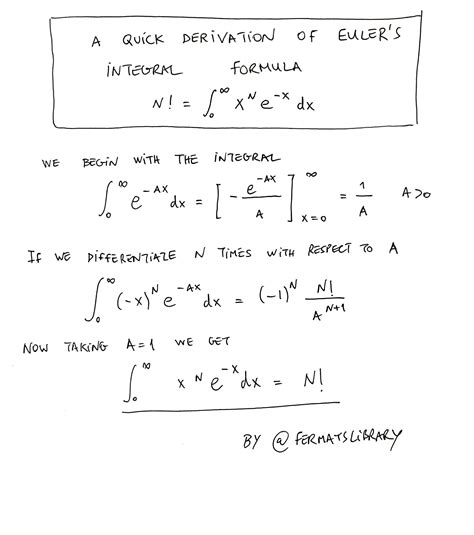 A QUICK DERIVATION OF EULER'S
INTEGRAL FORMULA
N! = ∫₀^∞ x^N e^-x dx
WE BEGIN WITH THE INTEGRAL
∫₀^∞ e^-AX dx = [ - e^-AX / A ]_{x=0}^∞ = 1/A A>0
IF WE DIFFERENTIATE N TIMES WITH RESPECT TO A
∫₀^∞ (-x)^N e^-AX dx = (-1)^N N!/A^{N+1}
NOW TAKING A=1 WE GET
∫₀^∞ x^N e^-x dx = N!
BY @FERMATSLIBRARY